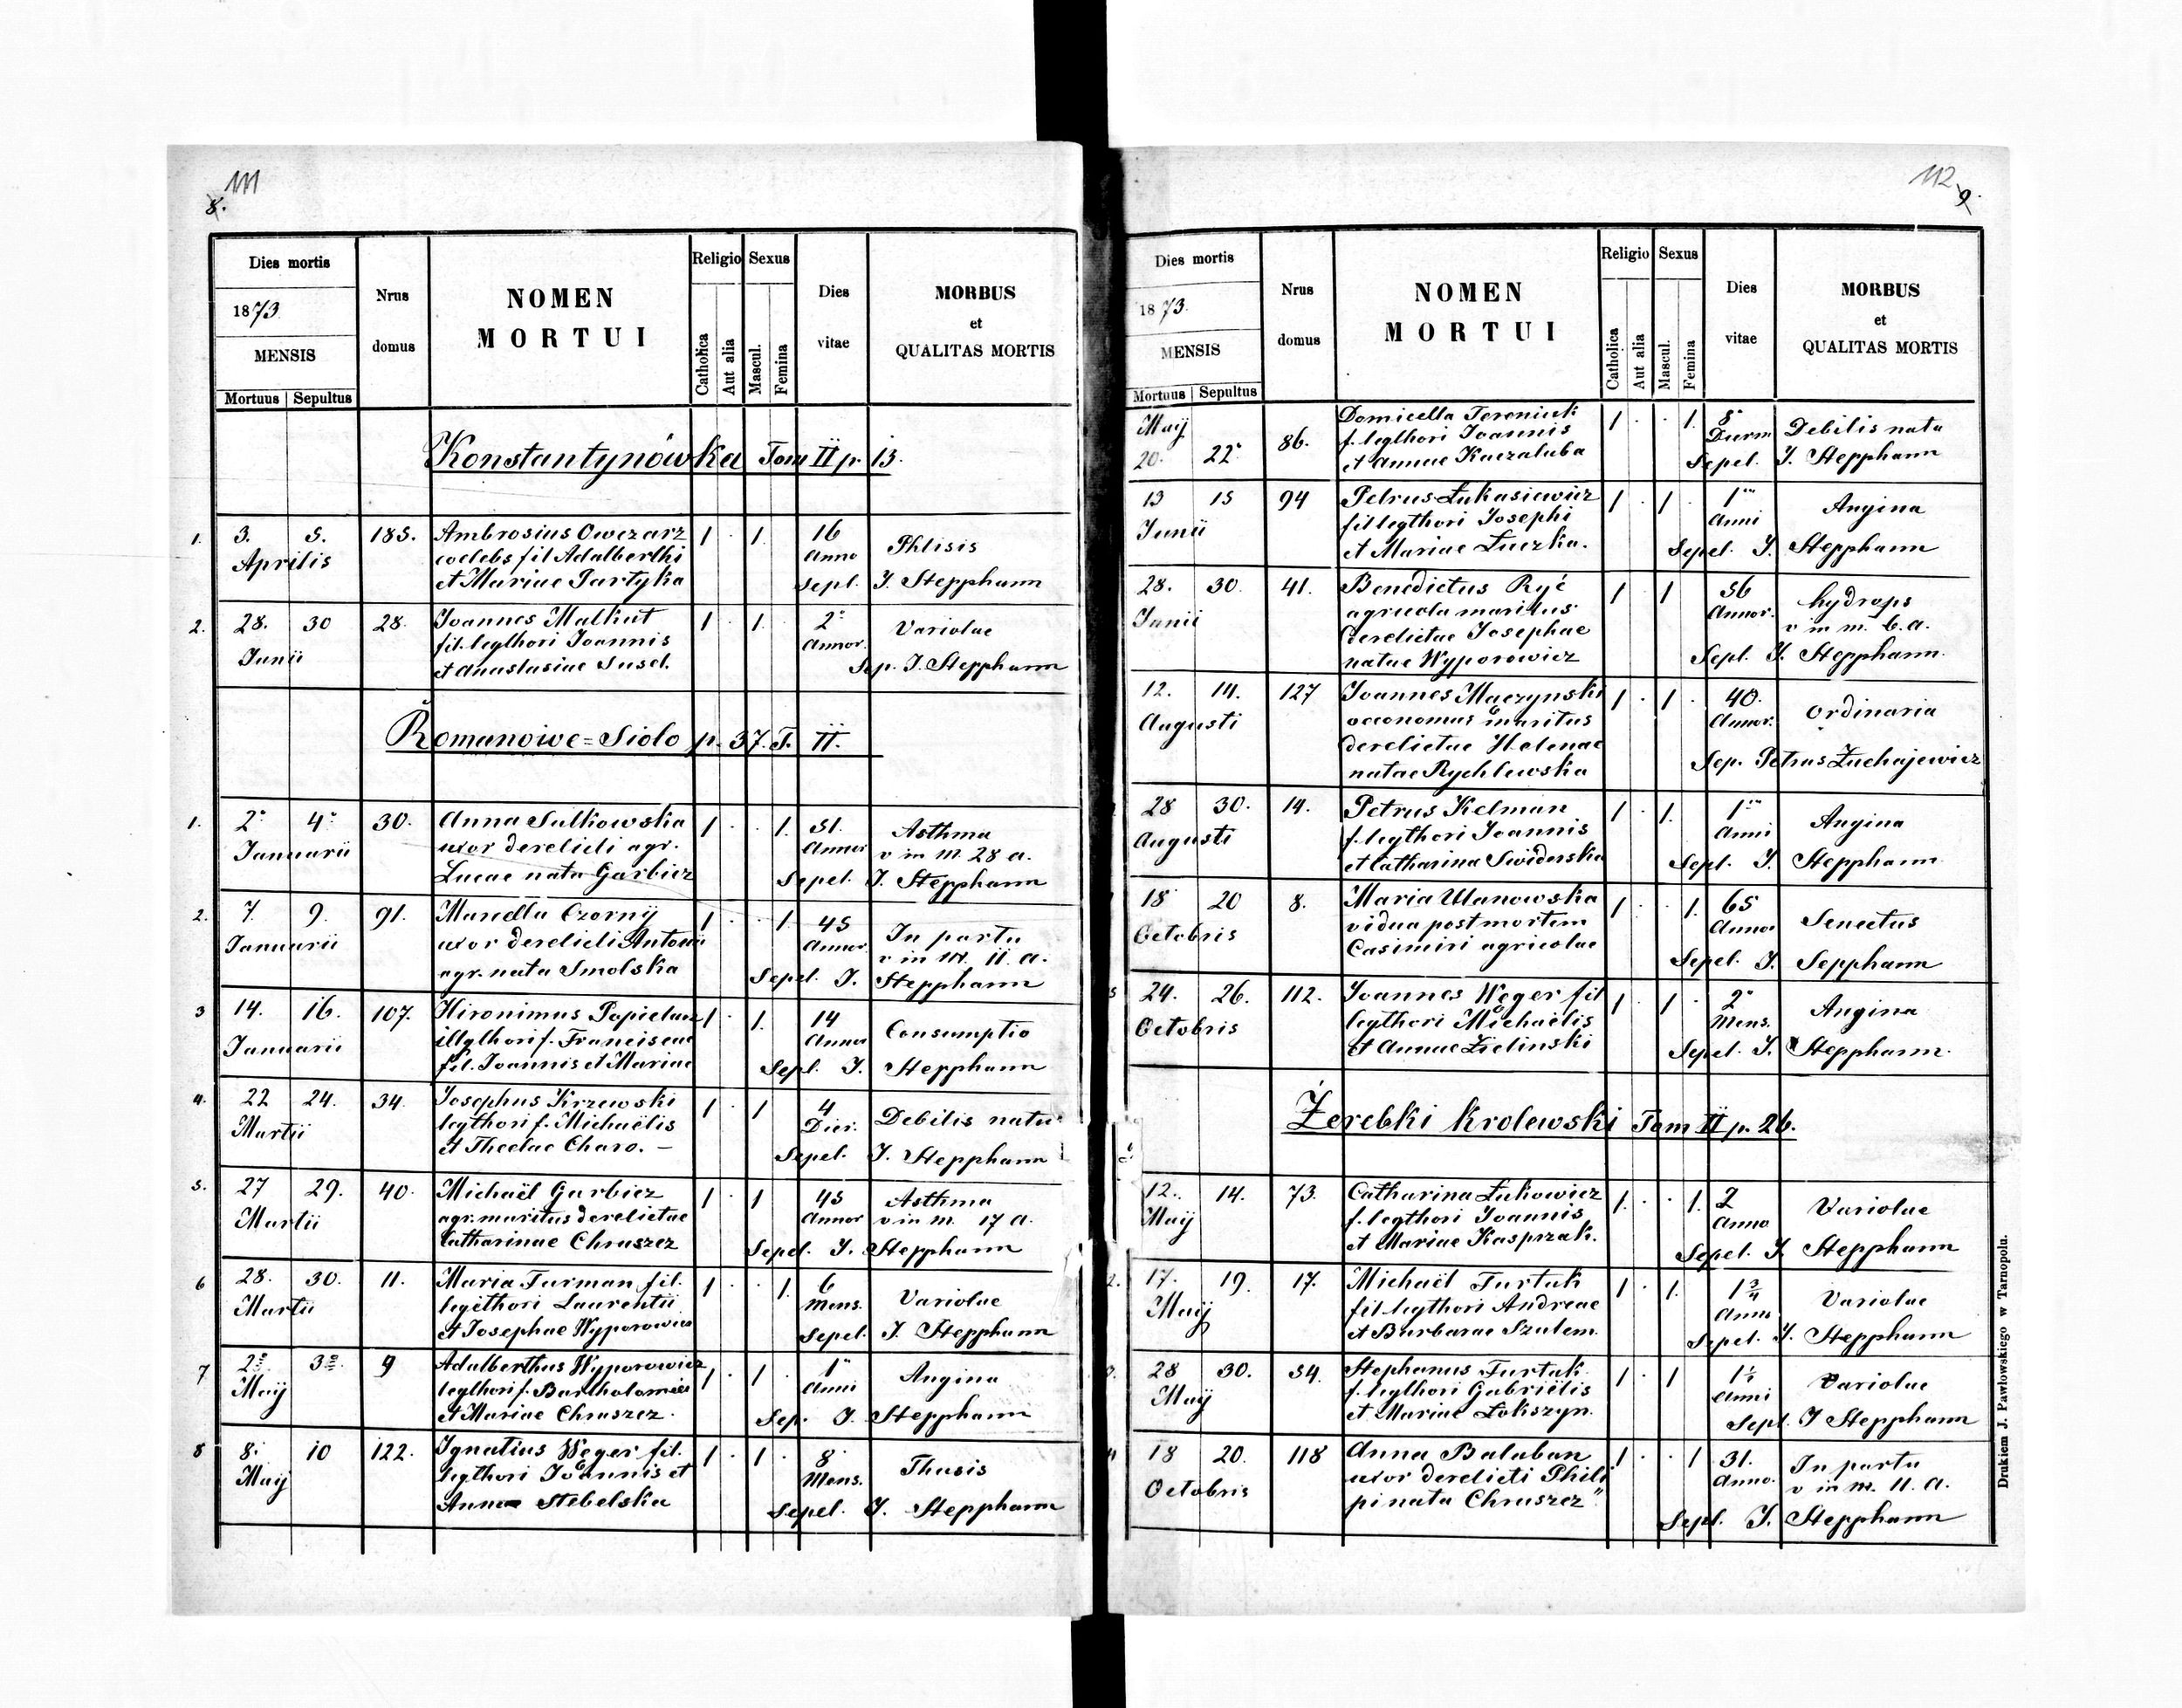 111
8.
Dies mortis
1873.
MENSIS
Mortuus | Sepultus
Nrus
domus
NOMEN
MORTUI
Religio
Catholica
Aut alia
Sexus
Mascul.
Femina
Dies
vitae
MORBUS
et
QUALITAS MORTIS
Konstantynówka Tom II p. 13.
1. 3. 5. 185. Ambrosius Owczarz 1 . 1. 16
Aprilis coelebs fil Adalberthi Anno Phtisis
et Mariae Partyka Sepl. J. Stepphann
2. 28. 30 28. Joannes Malkut 1 . 1. 2
Junii fil. legthori Joannis Annor. Variolae
et Anastasiae Susel. Sep. J. Stepphann
Romanowe=Sioło p. 37. T. II.
1. 2 4 30. Anna Sulkowska 1 . . 1. 51.
Januarii uxor derelicti agr. Annor Asthma
v in M. 28 a.
Lucae nata Garbicz Sepel. J. Stepphann
2. 7. 9. 91. Marcella Czornÿ 1 . . 1. 45
Januarii uxor derelicti Antonii Annor. In partu
v in M. 11. a.
agr. nata Smolska Sepel. J. Stepphann
3 14. 16. 107. Hironimus Papielarz 1 . 1. 14
Januarii illgthori f. Franciscae Annor Consumptio
fil. Joannis et Mariae Sepl. J. Stepphann
4. 22 24. 34. Josephus Krzewski 1 . 1 4
Martii legthori f. Michaëlis Dier. Debilis natu
et Theclae Charo. – Sepel. J. Stepphann
5. 27 29. 40. Michaël Garbicz 1 . 1 45
Martii agr. maritus derelictae Annor Asthma
v in m. 17 a.
Catharinae Chruszcz Sepel. J. Stepphann
6 28. 30. 11. Maria Furman fil. 1 . . 1. 6
Martii legithori Laurentii Mens. Variolae
et Josephae Wyporowicz Sepel. J. Stepphann
7 2 3 9 Adalberthus Wyporowicz 1 . 1 . 1
Maÿ legthori f. Bartholomaei Anni Angina
et Mariae Chruszcz. Sep. J. Stepphann
8 8. 10 122. Ignatius Weger fil. 1 . 1 . 8
Maÿ legthori Joannis et Mens. Thusis
Annae Stebelska Sepel. J. Stepphann
112
9.
Dies mortis
1873.
MENSIS
Mortuus | Sepultus
Nrus
domus
NOMEN
MORTUI
Religio
Catholica
Aut alia
Sexus
Mascul.
Femina
Dies
vitae
MORBUS
et
QUALITAS MORTIS
Maÿ Domicella Tereniuk 1 . . 1. 8
20. 22 86. f. legthori Joannis Durm Debilis nata
et Annae Kaczaluba Sepel. J. Stepphann
13 15 94 Petrus Łukasiewicz 1 . 1 . 1
Junii fil legthori Josephi Anni Angina
et Mariae Łuczka. Sepel. J. Stepphann
28. 30. 41. Benedictus Ryć 1 1 56
Junii agricola maritus Annor. hydrops
v in m. 6. a.
derelictae Josephae
natae Wyporowicz Sepl. J. Stepphann.
12. 14. 127 Joannes Maczynski 1 . 1 . 40.
Augusti oeconomus maritus Annor. Ordinaria
derelictae Helenae
natae Rychlewska Sep. Petrus Żuchajewicz
28 30. 14. Petrus Kelman 1 . 1. 1
Augusti f. legthori Joannis Anni Angina
et Catharina Swiderska Sepel. J. Stepphann
18 20 8. Maria Ulanowska 1 . . 1. 65
Octobris vidua post mortem Annor Senectus
Casimiri agricolae Sepel. J. Sepphann
5 24. 26. 112. Joannes Weger fil 1 . 1 . 2
Octobris legthori Michaëlis Mens. Angina
et Annae Zielinski Sepel. J. Stepphann.
Żerebki krolewski Tom II p. 26.
12. 14. 73. Catharina Łukowicz 1. . . 1. 2
Maÿ f. legthori Joannis Anno Variolae
et Mariae Kasprzak. Sepel. J. Stepphann
2. 17. 19. 17. Michaël Furtak 1 . 1. 1 3/4
Maÿ fil legthori Andreae Anno Variolae
et Barbarae Szulem. Sepel. J. Stepphann
3. 28 30. 54. Stephanus Furtak 1 . 1 1
Maÿ f. legthori Gabriëlis Anni Variolae
et Mariae Łokszyn. Sepl. J Stepphann
4 18 20. 118 Anna Balaban 1 . . 1 31.
Octobris uxor derelicti Phili Anno. In partu
v in m. 11. a.
pi nata Chruszcz" Sepl. J. Stepphann
Drukiem J. Pawłowskiego w Tarnopolu.